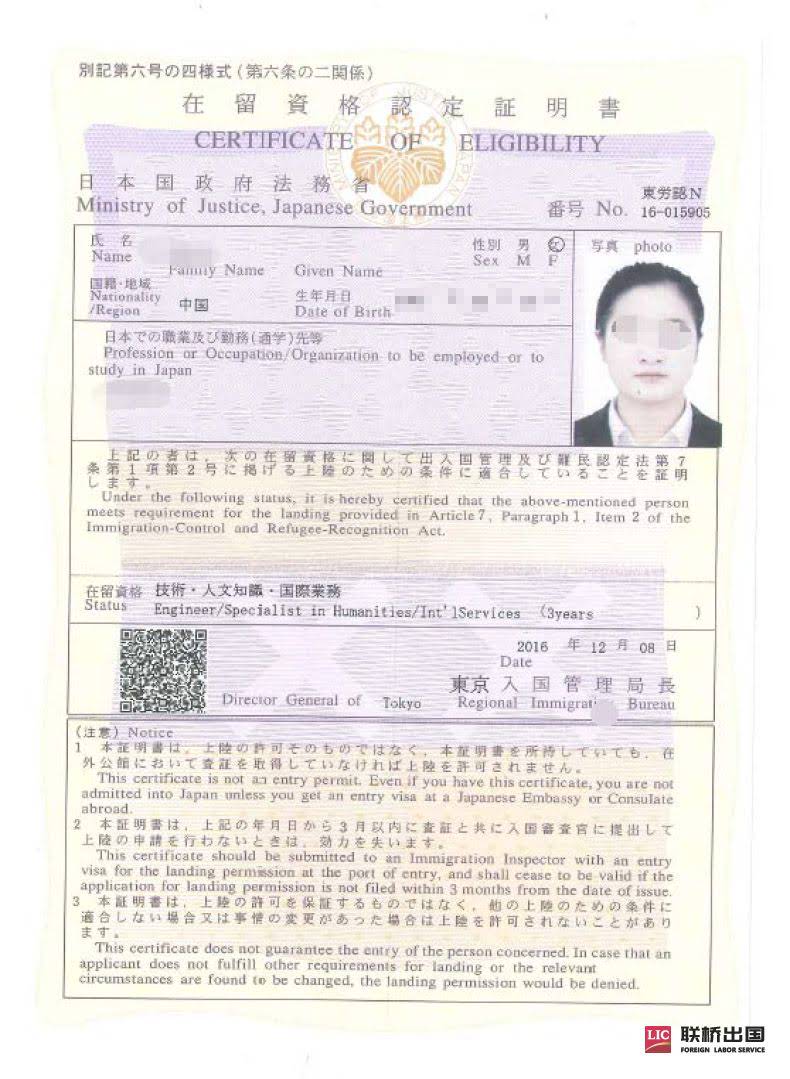 別記第六号の四様式(第六条の二関係)
在留資格認定証明書
CERTIFICATE OF ELIGIBILITY
日本国政府法務省
Ministry of Justice, Japanese Government
番号 No.
東労認N
16-015905
氏名
Name
Family Name Given Name
性別 男 女
Sex M F
写真 photo
国籍・地域
Nationality
/Region
中国
生年月日
Date of Birth
日本での職業及び勤務(通学)先等
Profession or Occupation/Organization to be employed or to
study in Japan
上記の者は、次の在留資格に関して出入国管理及び難民認定法第7
条第1項第2号に掲げる上陸のための条件に適合していることを証明
します。
Under the following status, it is hereby certified that the above-mentioned person
meets requirement for the landing provided in Article 7, Paragraph 1, Item 2 of the
Immigration-Control and Refugee-Recognition Act.
在留資格 技術・人文知識・国際業務
Status Engineer/Specialist in Humanities/Int'lServices (3years )
2016 年 12 月 08 日
Date
東京入国管理局長
Director General of Tokyo Regional Immigrati Bureau
(注意) Notice
1 本証明書は、上陸の許可そのものではなく、本証明書を所持していても、在
外公館において査証を取得していなければ上陸を許可されません。
This certificate is not an entry permit. Even if you have this certificate, you are not
admitted into Japan unless you get an entry visa at a Japanese Embassy or Consulate
abroad.
2 本証明書は、上記の年月日から3月以内に査証と共に入国審査官に提出して
上陸の申請を行わないときは、効力を失います。
This certificate should be submitted to an Immigration Inspector with an entry
visa for the landing permission at the port of entry, and shall cease to be valid if the
application for landing permission is not filed within 3 months from the date of issue.
3 本証明書は、上陸の許可を保証するものではなく、他の上陸のための条件に
適合しない場合又は事情の変更があった場合は上陸を許可されないことがあり
ます。
This certificate does not guarantee the entry of the person concerned. In case that an
applicant does not fulfill other requirements for landing or the relevant
circumstances are found to be changed, the landing permission would be denied.
LIC 联桥出国
FOREIGN LABOR SERVICE